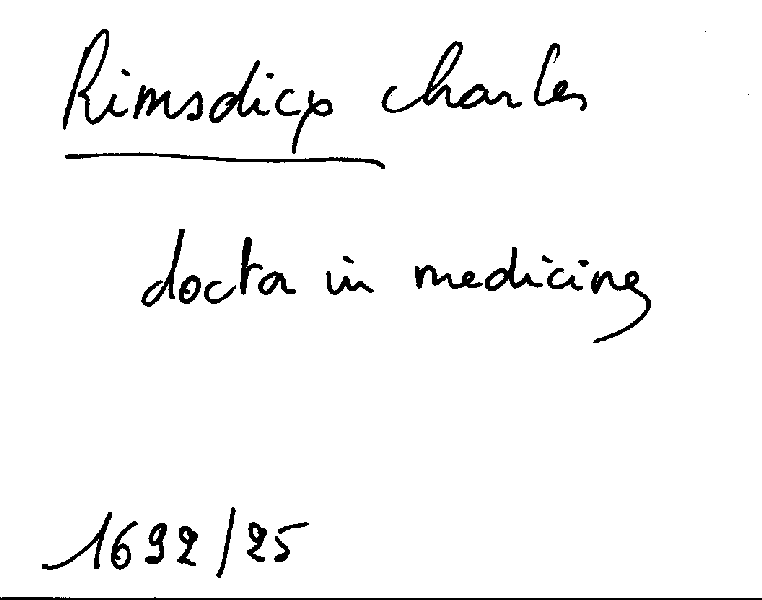 Rimsdicx Charles
docta in medicine
1692/25